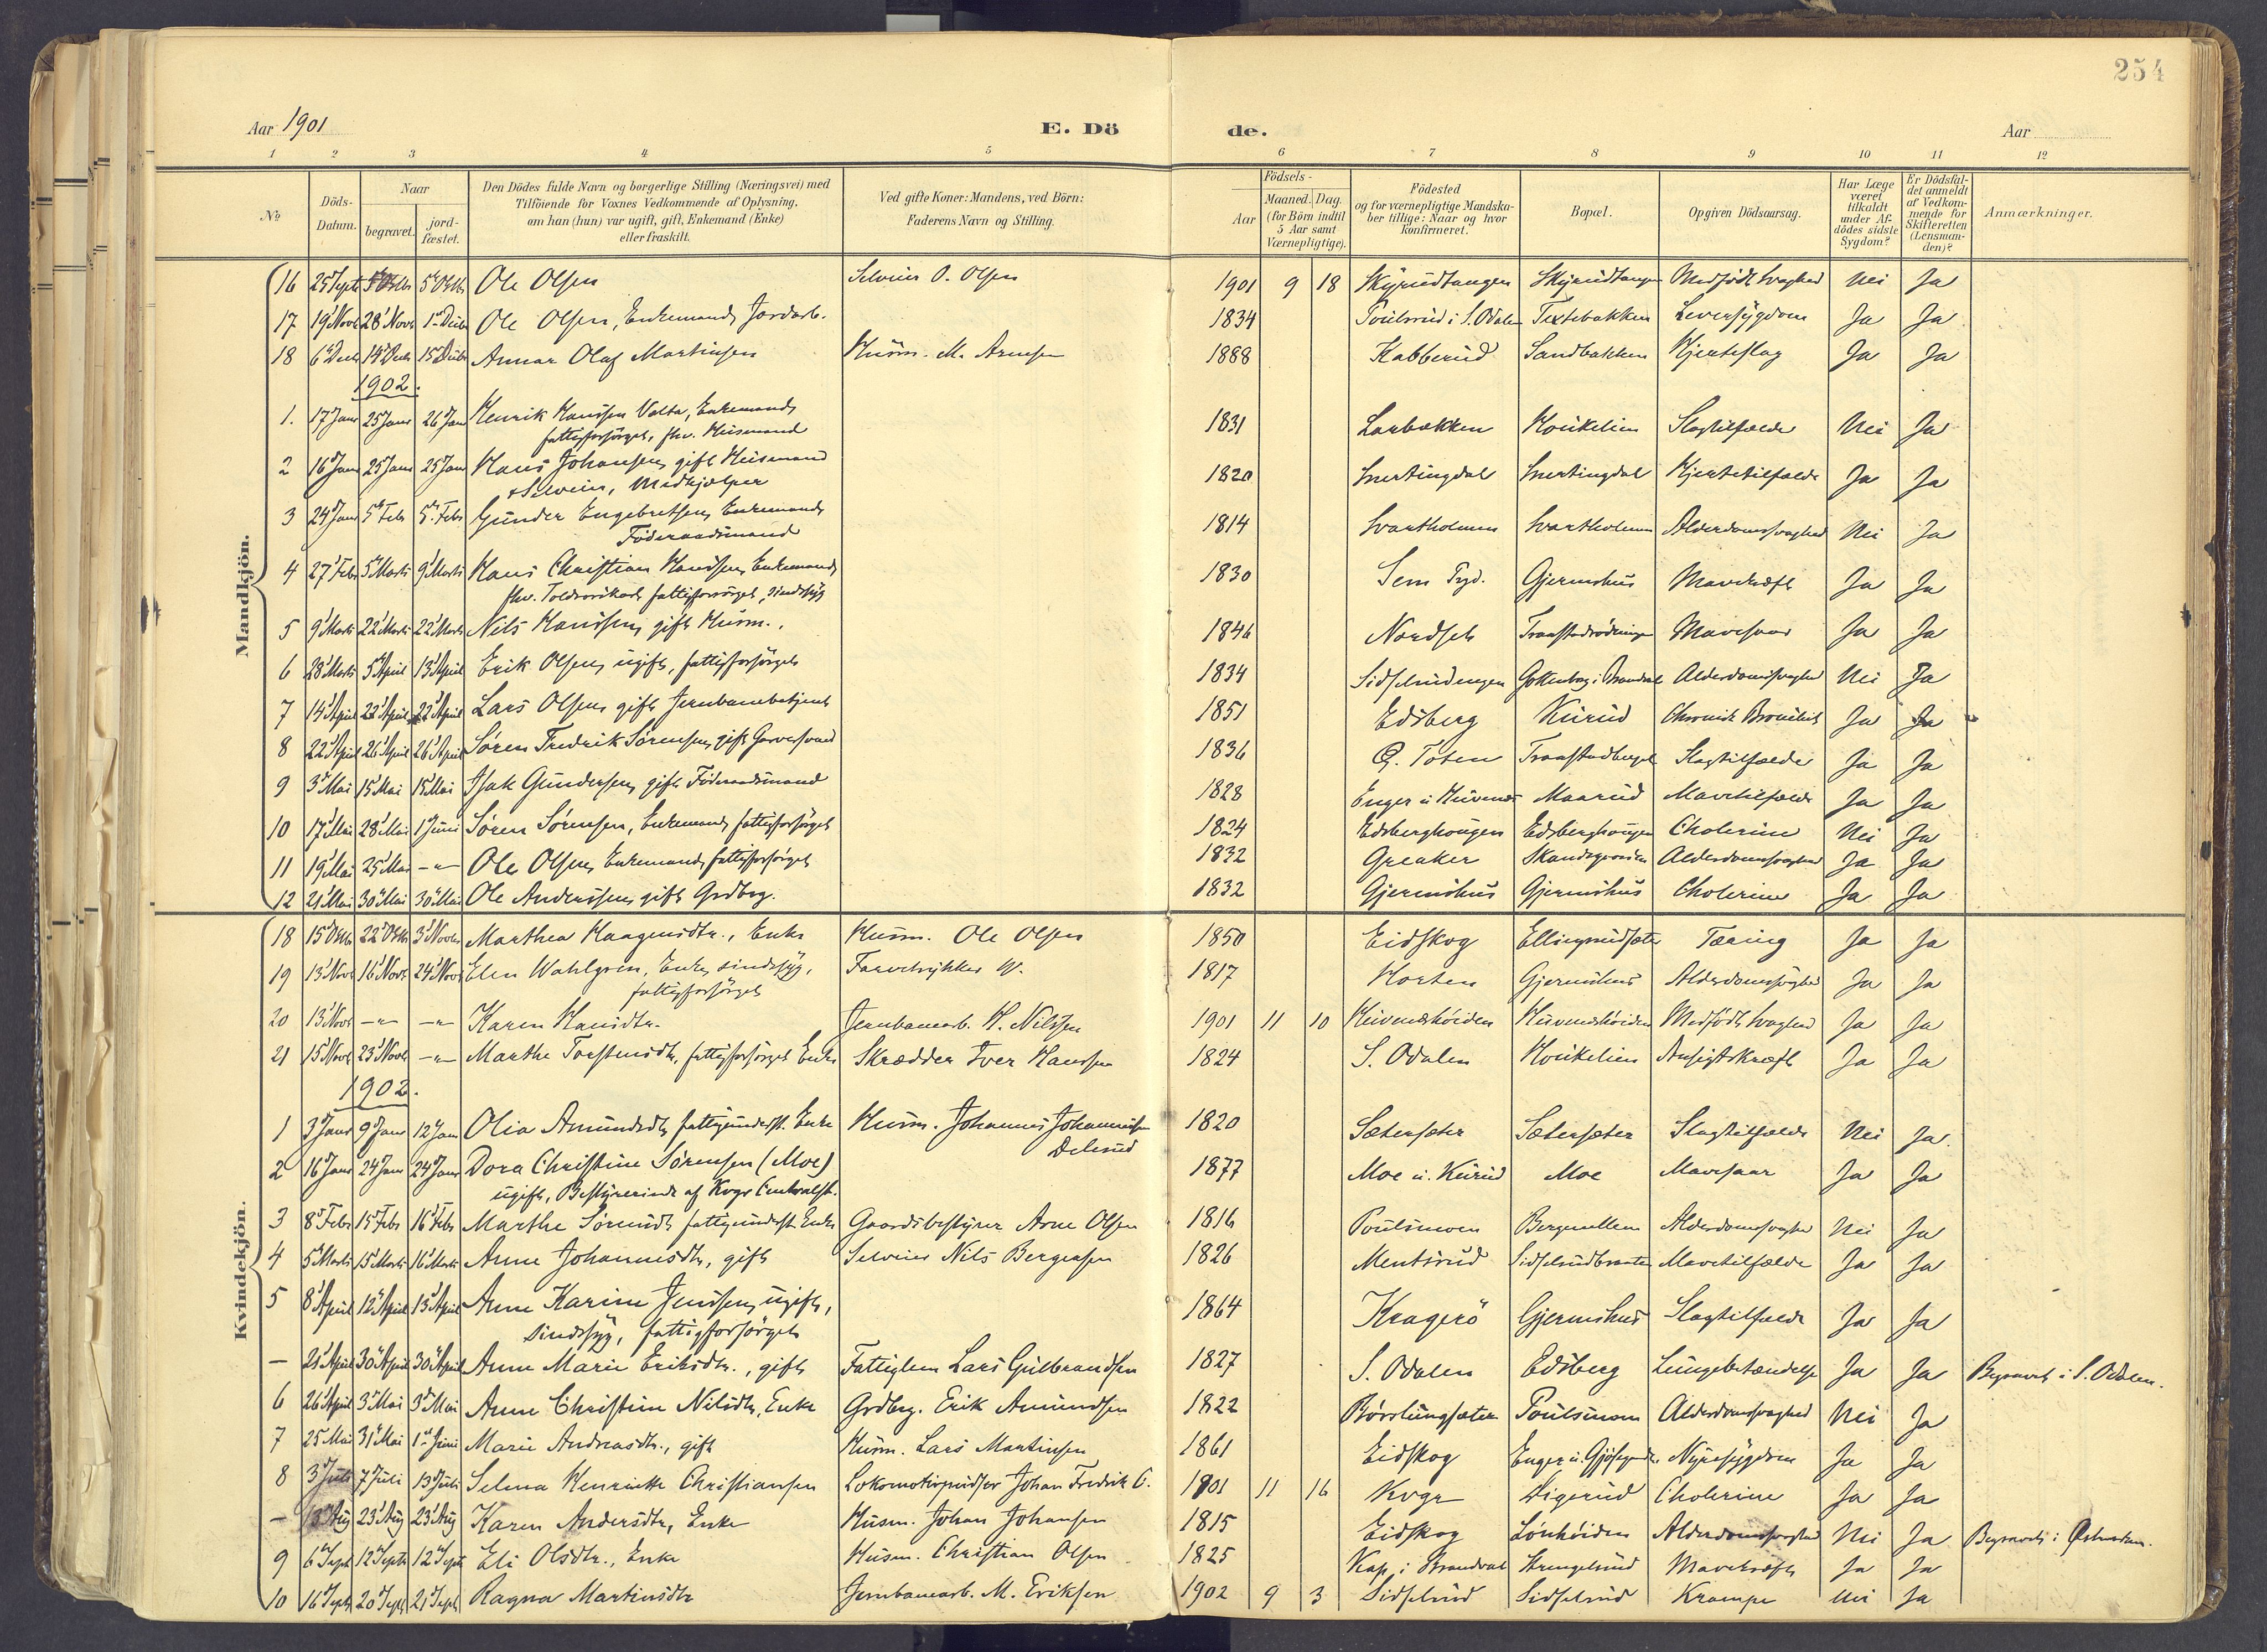 254
Aar 1901 E. Dö de. Aar
1 2 3 4 5 6 7 8 9 10 11 12
№ Döds-Datum. Naar begravet. jordfæstet. Den Dödes fulde Navn og borgerlige Stilling (Næringsvei) med Tilföiende for Voxnes Vedkommende af Oplysning, om han (hun) var ugift, gift, Enkemand (Enke) eller fraskilt. Ved gifte Koner: Mandens, ved Börn: Faderens Navn og Stilling. Födsels- Aar Maaned. Dag. (for Börn indtil 5 Aar samt Værnepligtige). Födested og for værnepligtige Mandskaber tillige: Naar og hvor konfirmeret. Bopæl. Opgiven Dödsaarsag. Har Læge været tilkaldt under Afdödes sidste Sygdom? Er Dödsfaldet anmeldt af Vedkommende for Skifteretten (Lensmanden)? Anmærkninger.
Mandkjön.
16 25 Septr 5 Oktr 5 Oktr Ole Olsen Selveier O. Olsen 1901 9 18 Skyrudtangen Skyrudtangen Medfödt Svaghed Nei Ja
17 19 Novr 28 Novr 1 Decbr Ole Olsen, Enkemand, Jordarb. 1834 Poulsrud i S. Odalen Textebakken Leversygdom Ja Ja
18 6 Decbr 14 Decbr 15 Decbr Annar Olaf Martinsen Husm. M. Arnesen 1888 Kabberud Sandbakken Hjerteslag Ja Ja
1902.
1. 17 Janr 25 Janr 26 Jan Henrik Hansen Valta, Enkemand, 1831 Larbakken Houkelien Slagtilfælde Nei Ja
fattigforsörget, fhv. Husmand
2 16 Janr 25 Janr 25 Janr Hans Johansen, gift Husmand 1820 Snertingdal Snertingdal Hjertetilfælde Ja Ja
& Selveier, Medhjælper
3 24 Janr 5 Febr 5 Febr Gunder Engebretsen, Enkemand, 1814 Svartholmen Svartholmen Alderdomssvaghed Nei Ja
Föderaadsmand
4 27 Febr 5 Marts 9 Marts Hans Christian Hansen, Enkemand, 1830 Sem Pgd. Gjermshus Mavekræft Ja Ja
fhv. fattigforsörget, sindssyg
5 9 Marts 22 Marts 22 Marts Nils Hansen, gift Husm. 1846 Nordset Mavesaar Ja Ja
6 28 Marts 5 April 13 April Erik Olsen, ugift, fattigforsörget 1834 Sidselrudengen i Brandval Alderdomssvaghed Nei Ja
7 14 April 22 April 22 April Lars Olsen, gift Jernbanebetjent 1851 Edsberg Kurud Chronisk Bronchit Ja Ja
8 22 April 26 April 26 April Søren Fredrik Sørensen, gift Garversvend 1836 Ö. Toten Traastadberget Slagtilfælde Ja Ja
9 3 Mai 15 Mai 15 Mai Isak Gundersen, gift Föderaadsmand 1828 Enger u. Huvenæs Maarud Mavetilfælde Ja Ja
10 17 Mai 28 Mai 1 Juni Søren Sørensen, Enkemand, fattigforsörget 1824 Edsberghougen Edsberghougen Cholerine Nei Ja
11 19 Mai 25 Mai -"- Ole Olsen, Enkemand, fattigforsörget 1832 Greaker Skandsgaarden Alderdomssvaghed Ja Ja
12 21 Mai 30 Mai 30 Mai Ole Anderssen, gift Grdbrg. 1832 Gjermshus Gjermshus Cholerine Ja Ja
Kvindekjön.
18 15 Oktr 22 Oktr 3 Novbr Marthea Haagensdtr., Enke Husm. Ole Olsen 1850 Eidskog Ellingrudsæter Tæring Ja Ja
19 13 Novr 16 Novr 24 Novr Elen Wahlgren, Enke, sindssyg, Farvetrykker W. 1817 Horten Gjermshus Alderdomssvaghed Ja Ja
fattigforsörget
20 13 Novr -"- -"- Karen Hansdtr. Jernbanearb. H. Nilssen 1901 11 10 Huvenæshöiden Huvenæshöiden Medfödt Svaghed Ja Ja
21 15 Novr 23 Novr -"- Marthe Torstensdtr, fattigforsörget Enke Skrædder Iver Hansen 1824 S. Odalen Houkelien Ansigtskræft Ja Ja
1902.
1 3 Janr 9 Janr 12 Jan Olia Amundsdtr, fattigunderst. Enke Husm. Johannes Johannessen 1820 Sætersæter Sætersæter Slagtilfælde Nei Ja.
2 16 Janr 24 Jan 24 Janr Dora Christine Sörensen (Moe) 1877 Moe u. Kurud Moe Mavesaar Ja Ja
ugift, Bestyrerinde af Kvgr Centralst.
3 8 Febr 15 Febr 16 Febr Marthe Sörensdtr fattigunderst. Enke Gaardsbestyrer Arne Olsen 1816 Poulsmoen Bergmellem Alderdomssvaghed Nei Ja
4 5 Marts 15 Marts 16 Marts Anne Johannesdtr, gift Selveier Nils Bergersen 1826 Mentsrud Sidselrudbraaten Mavetilfælde Ja Ja
5 8 April 12 April 13 April Anne Karine Jensen, ugift, 1864 Kragerö Gjermshus Slagtilfælde Ja Ja
sindssyg, fattigforsörget
- 21 April 30 April 30 April Anne Marie Eriksdtr., gift Fattiglem Lars Gulbrandsen 1827 S. Odalen Edsberg Lungebetændelse Ja Ja Begravet i S. Odalen.
6 26 April 3 Mai 3 Mai Anne Christine Nilsdtr, Enke Grdbrg. Erik Amundsen 1822 Börslungsæter Poulsmoen Alderdomssvaghed Nei Ja
7 25 Mai 31 Mai 1 Juni Marie Andreasdtr., gift Husm. Lars Martinsen 1861 Eidskog Enger u. Nyresygdom Ja Ja
8 3 Juli 7 Juli 13 Juli Selma Henriette Christiansen Lokomotivpudser Johan Fredrik C. 1901 11 16 Kvgr Digerud Cholerine Ja Ja
- 13 Aug 23 Aug 23 Aug Karen Andersdtr, Enke Husm. Johan Johansen 1815 Eidskog Lönhöiden Alderdomssvaghed Nei Ja Begravet i
9 6 Septr 12 Septr 12 Septr Eli Olsdtr., Enke Husm. Christian Olsen 1825 i Brandval Strengelsrud Mavekræft Ja Ja
10 16 Septr 20 Septr 21 Septr Ragna Martinsdtr Jernbanearb. M. Eriksen 1902 9 3 Sidselrud Sidselrud Krampe Nei Ja